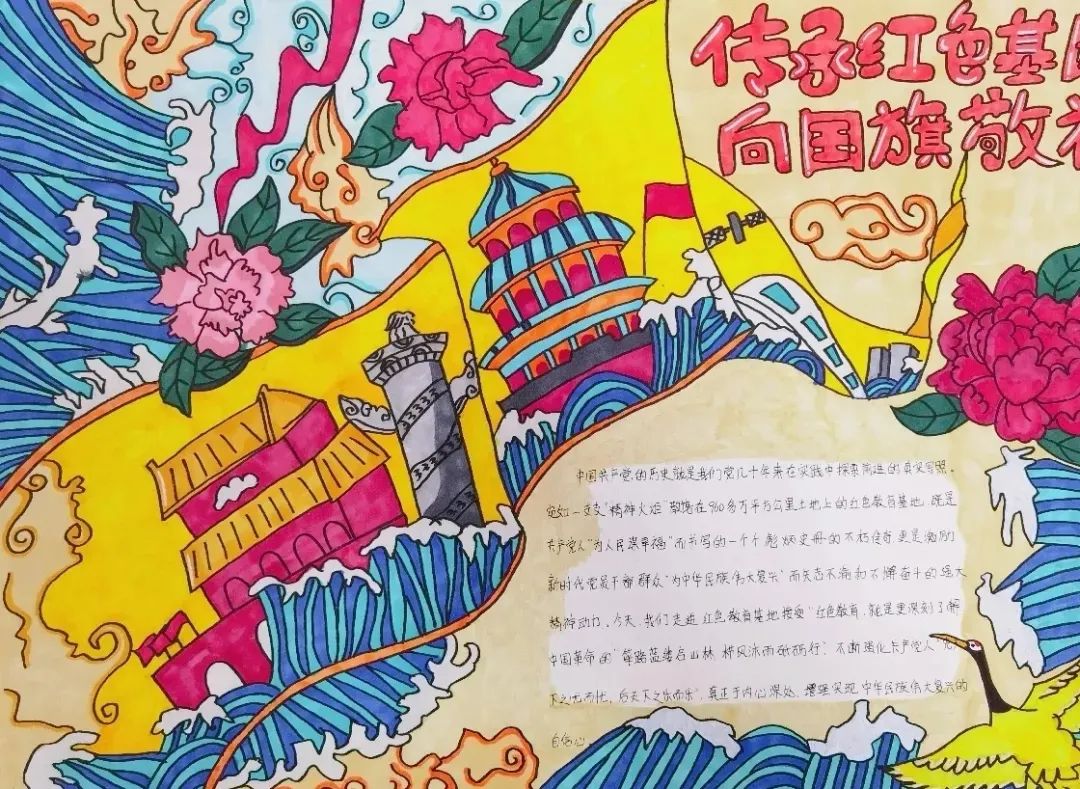 传承红色基
向国旗敬
中国共产党的历史就是我们党几十年来在实践中探索前进的真实写照。
宛如一支支"精神火炬"散落在960多万平方公里土地上的红色教育基地,既是
共产党人"为人民谋幸福"而书写的一个个彪炳史册的不朽传奇更是激励
新时代党员干部群众"为中华民族伟大复兴"而矢志不渝和不懈奋斗的强大
精神动力。今天,我们走进红色教育基地接受"红色教育,就是更深刻了解
中国革命的"筚路蓝缕启山林,栉风沐雨砥砺行",不断强化共产党人
下之忧而忧,后天下之乐而乐",真正于内心深处,增强实现中华民族伟大复兴的
自信心。